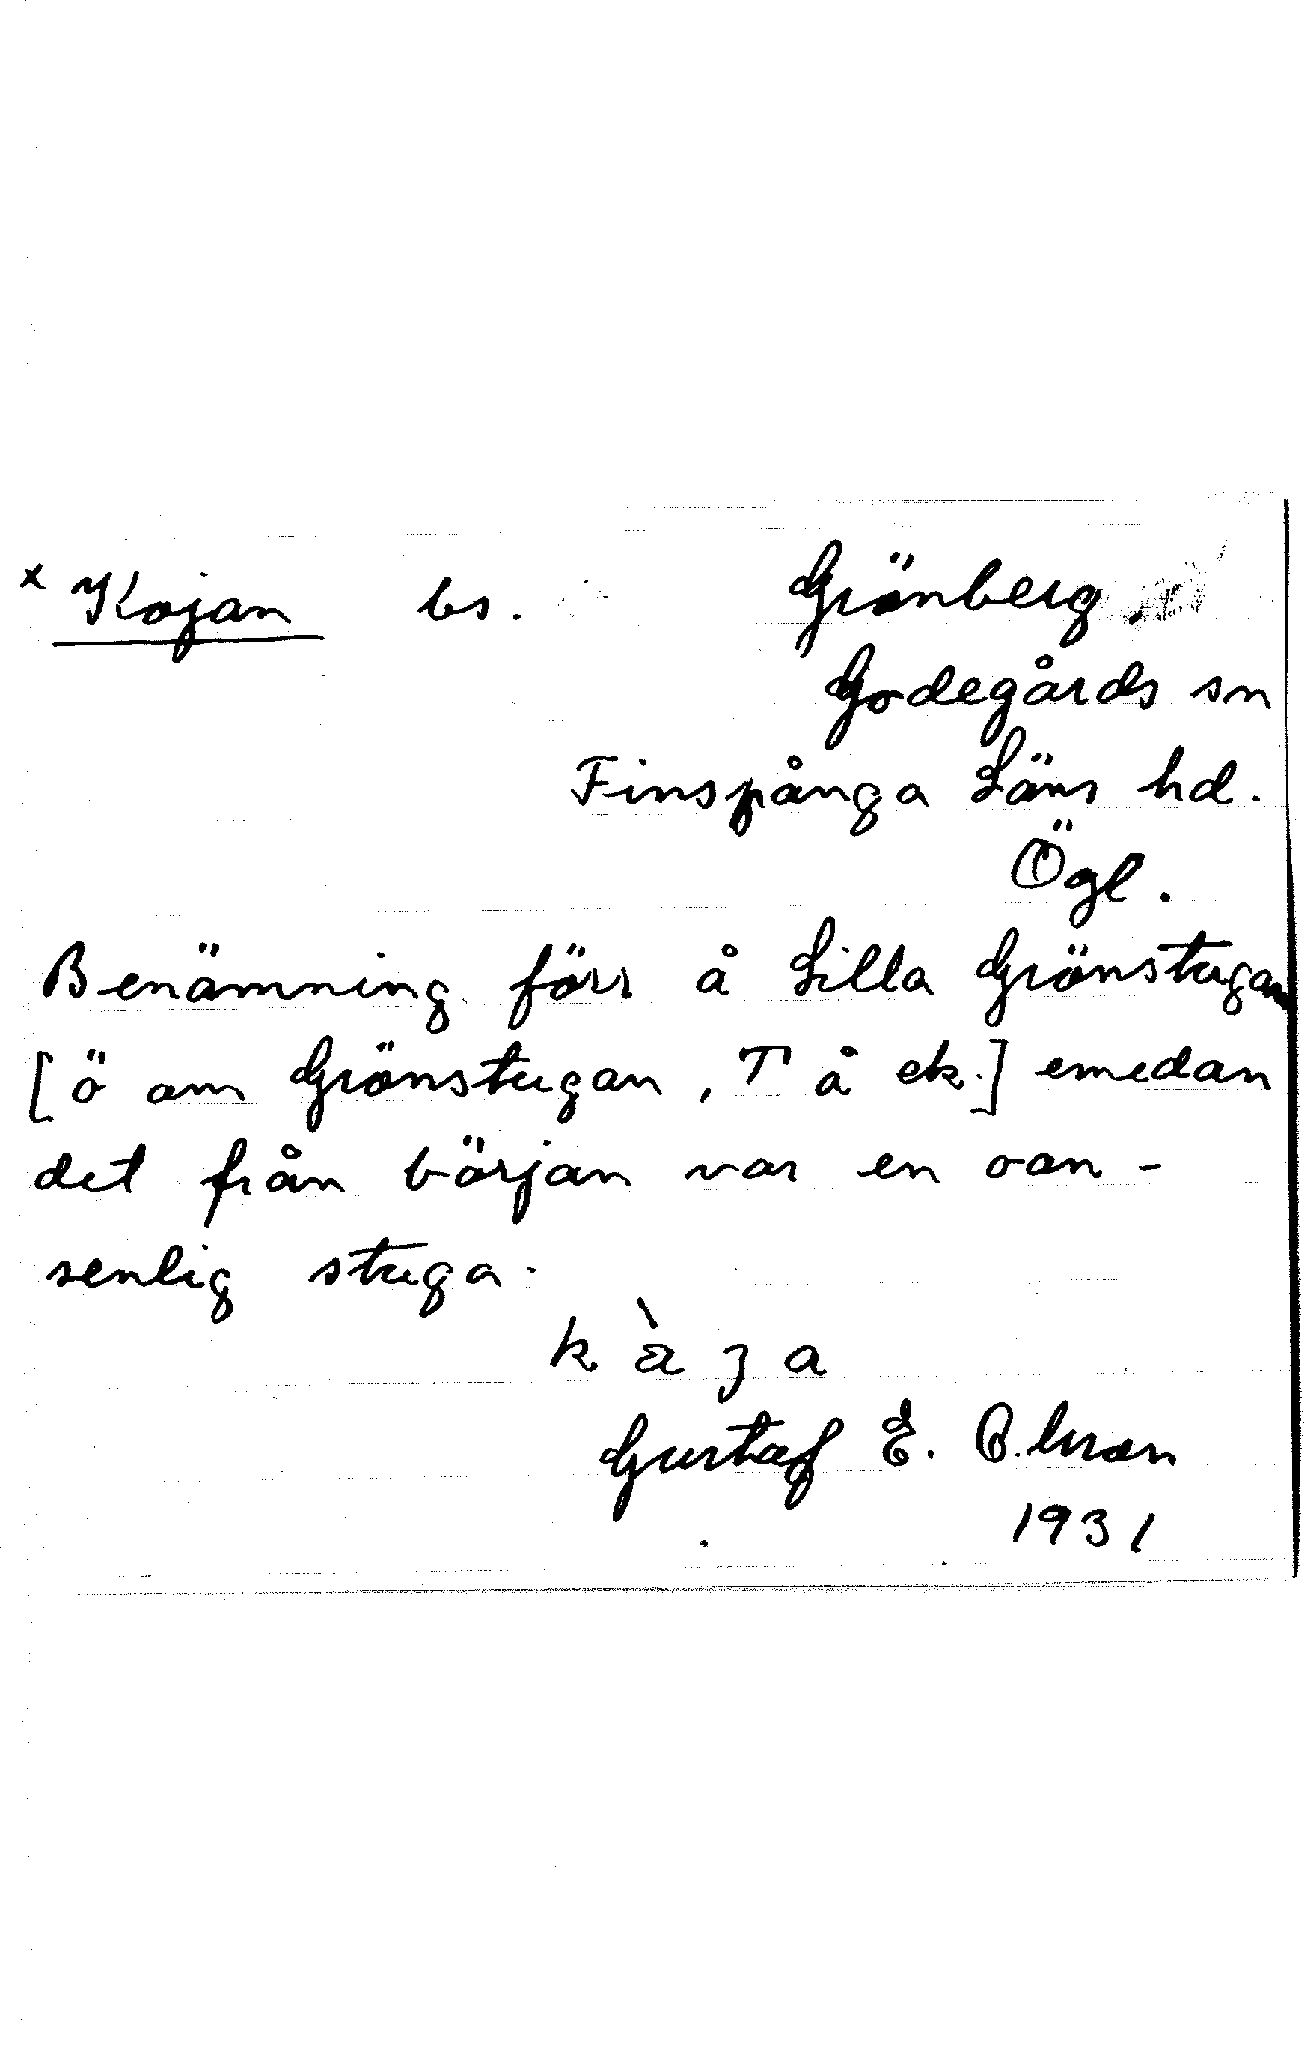 x Kojan bs. Grönberg
Godegårds sn
Finspånga Läns hd.
Ögl.
Benämning förr å Lilla Grönstugan
[ö om Grönstugan, T å ek.] emedan
det från början var en oan-
senlig stuga.
k
Gustaf E. Olson
1931